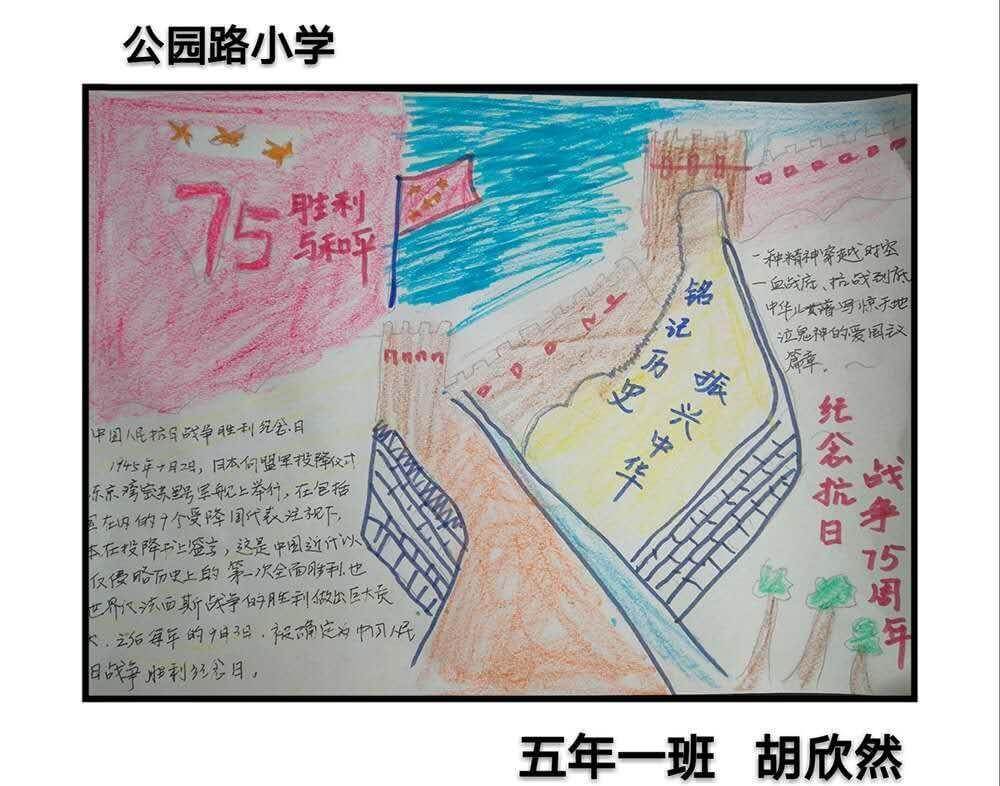 公园路小学
75
胜利
与和平
铭记历史
振兴中华
一种精神穿越时空
一血战底、抗战到底
中华儿女谱写惊天地
泣鬼神的爱国
篇章。
纪念抗日
战争75周年
中国人民抗日战争胜利纪念日
1945年9月2日，日本向盟军投降仪式
东京湾密苏里号军舰上举行，在包括
国在内的9个受降国代表注视下，
本在投降书上签字，这是中国近代以
反侵略历史上的第一次全面胜利.也
世界反法西斯战争的胜利做出巨大贡
之后每年的9月3日.被确定为中国人民
日战争胜利纪念日。
五年一班 胡欣然